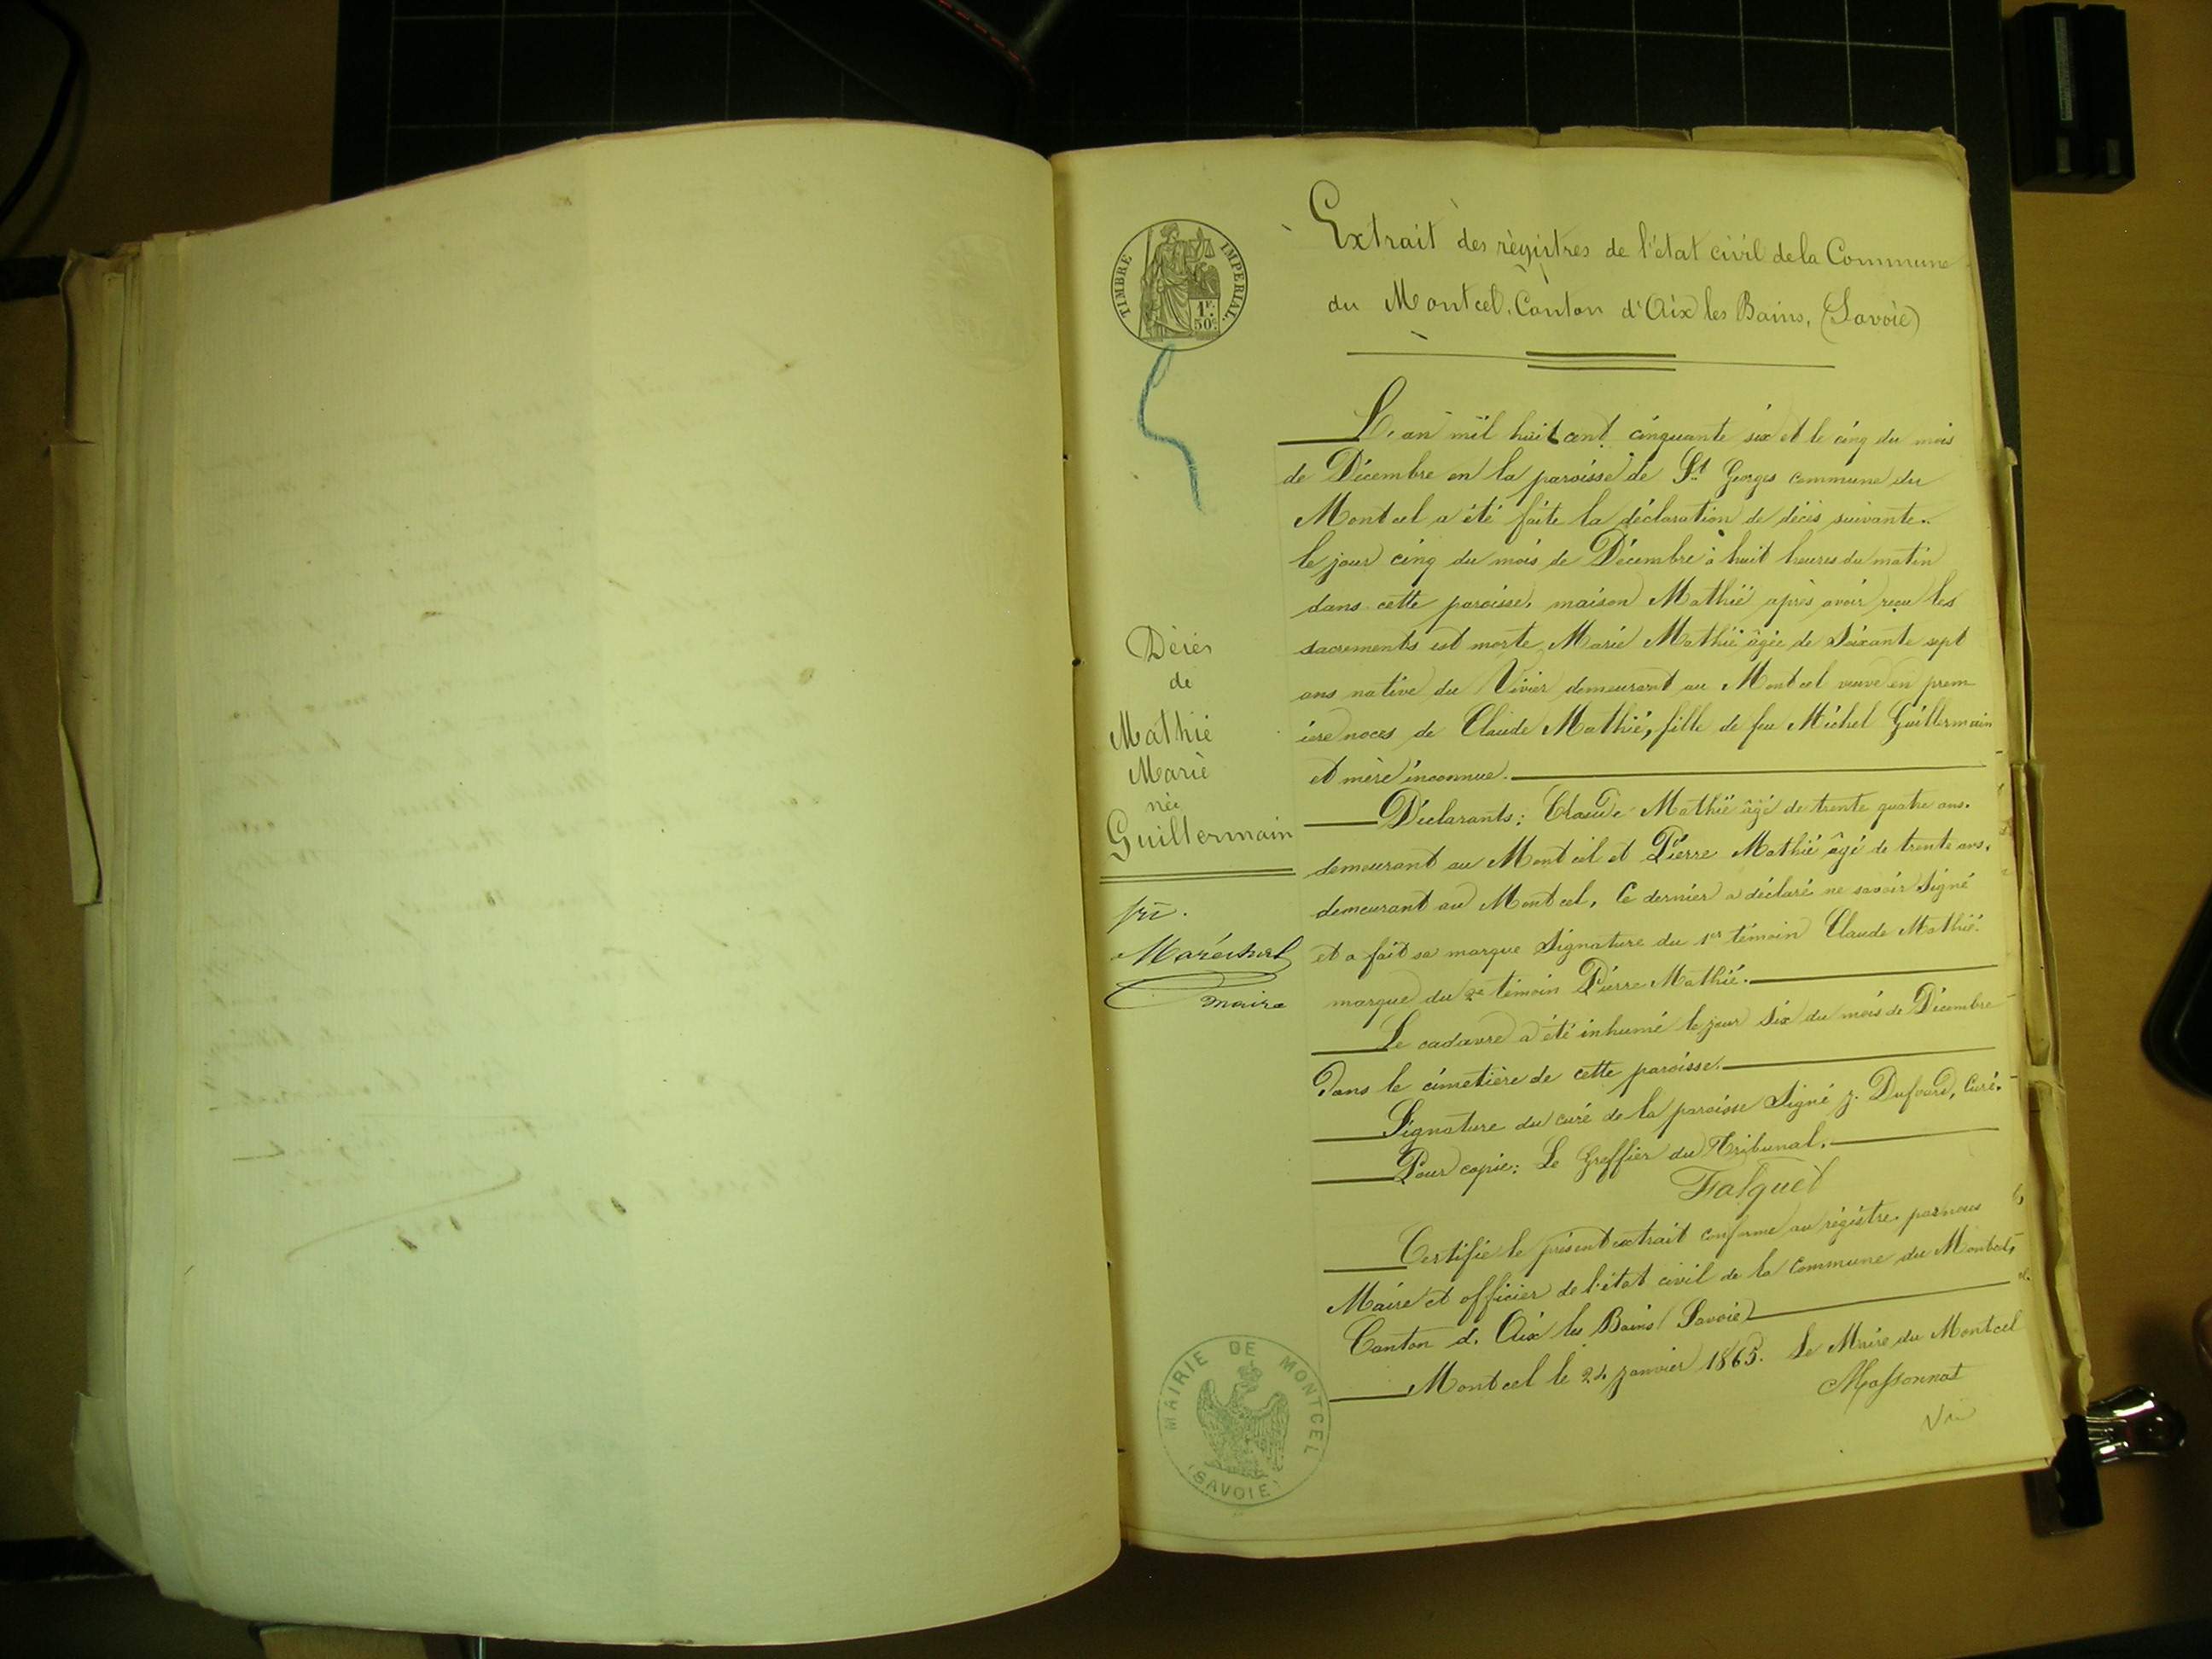 TIMBRE IMPERIAL.
1F. 50c.
Extrait des règistres de l'état civil de la Commune
du Montcel, Canton d'Aix les Bains, (Savoie)
L'an mil huit cent cinquante six et le cinq du mois
de Décembre en la paroisse de St Georges commune du
Montcel a été faite la déclaration de décès suivante.
le jour cinq du mois de Décembre à huit heures du matin
dans cette paroisse, maison Mathié après avoir reçu les
sacrements est morte Marie Mathié âgée de Soixante sept
ans native du Vivier demeurant au Montcel veuve en prem
ière noces de Claude Mathié, fille de feu Michel Guillermain
et mère inconnue.
Déclarants: Claude Mathié âgé de trente quatre ans.
demeurant au Montcel et Pierre Mathié âgé de trente ans,
demeurant au Montcel, Ce dernier a déclaré ne savoir Signé
et a fait sa marque Signature du 1er témoin Claude Mathié.
marque du 2e témoin Pierre Mathié.
Le cadavre a été inhumé le jour Six du mois de Décembre
Dans le cimetière de cette paroisse.
Signature du curé de la paroisse Signé J. Dufourd, Curé.
Pour copie: Le Greffier du Tribunal.
Falquet
Certifié le présent extrait conforme au régistre par nous
Maire et officier de l'état civil de la Commune du Montcel,
Canton d. Aix les Bains (Savoie)
Montcel le 24 janvier 1865. Le Maire du Montcel
Massonnat
Décès
de
Mathié
Marie
née
Guillermain
Maréchal
maire
MAIRIE DE MONTCEL
(SAVOIE)